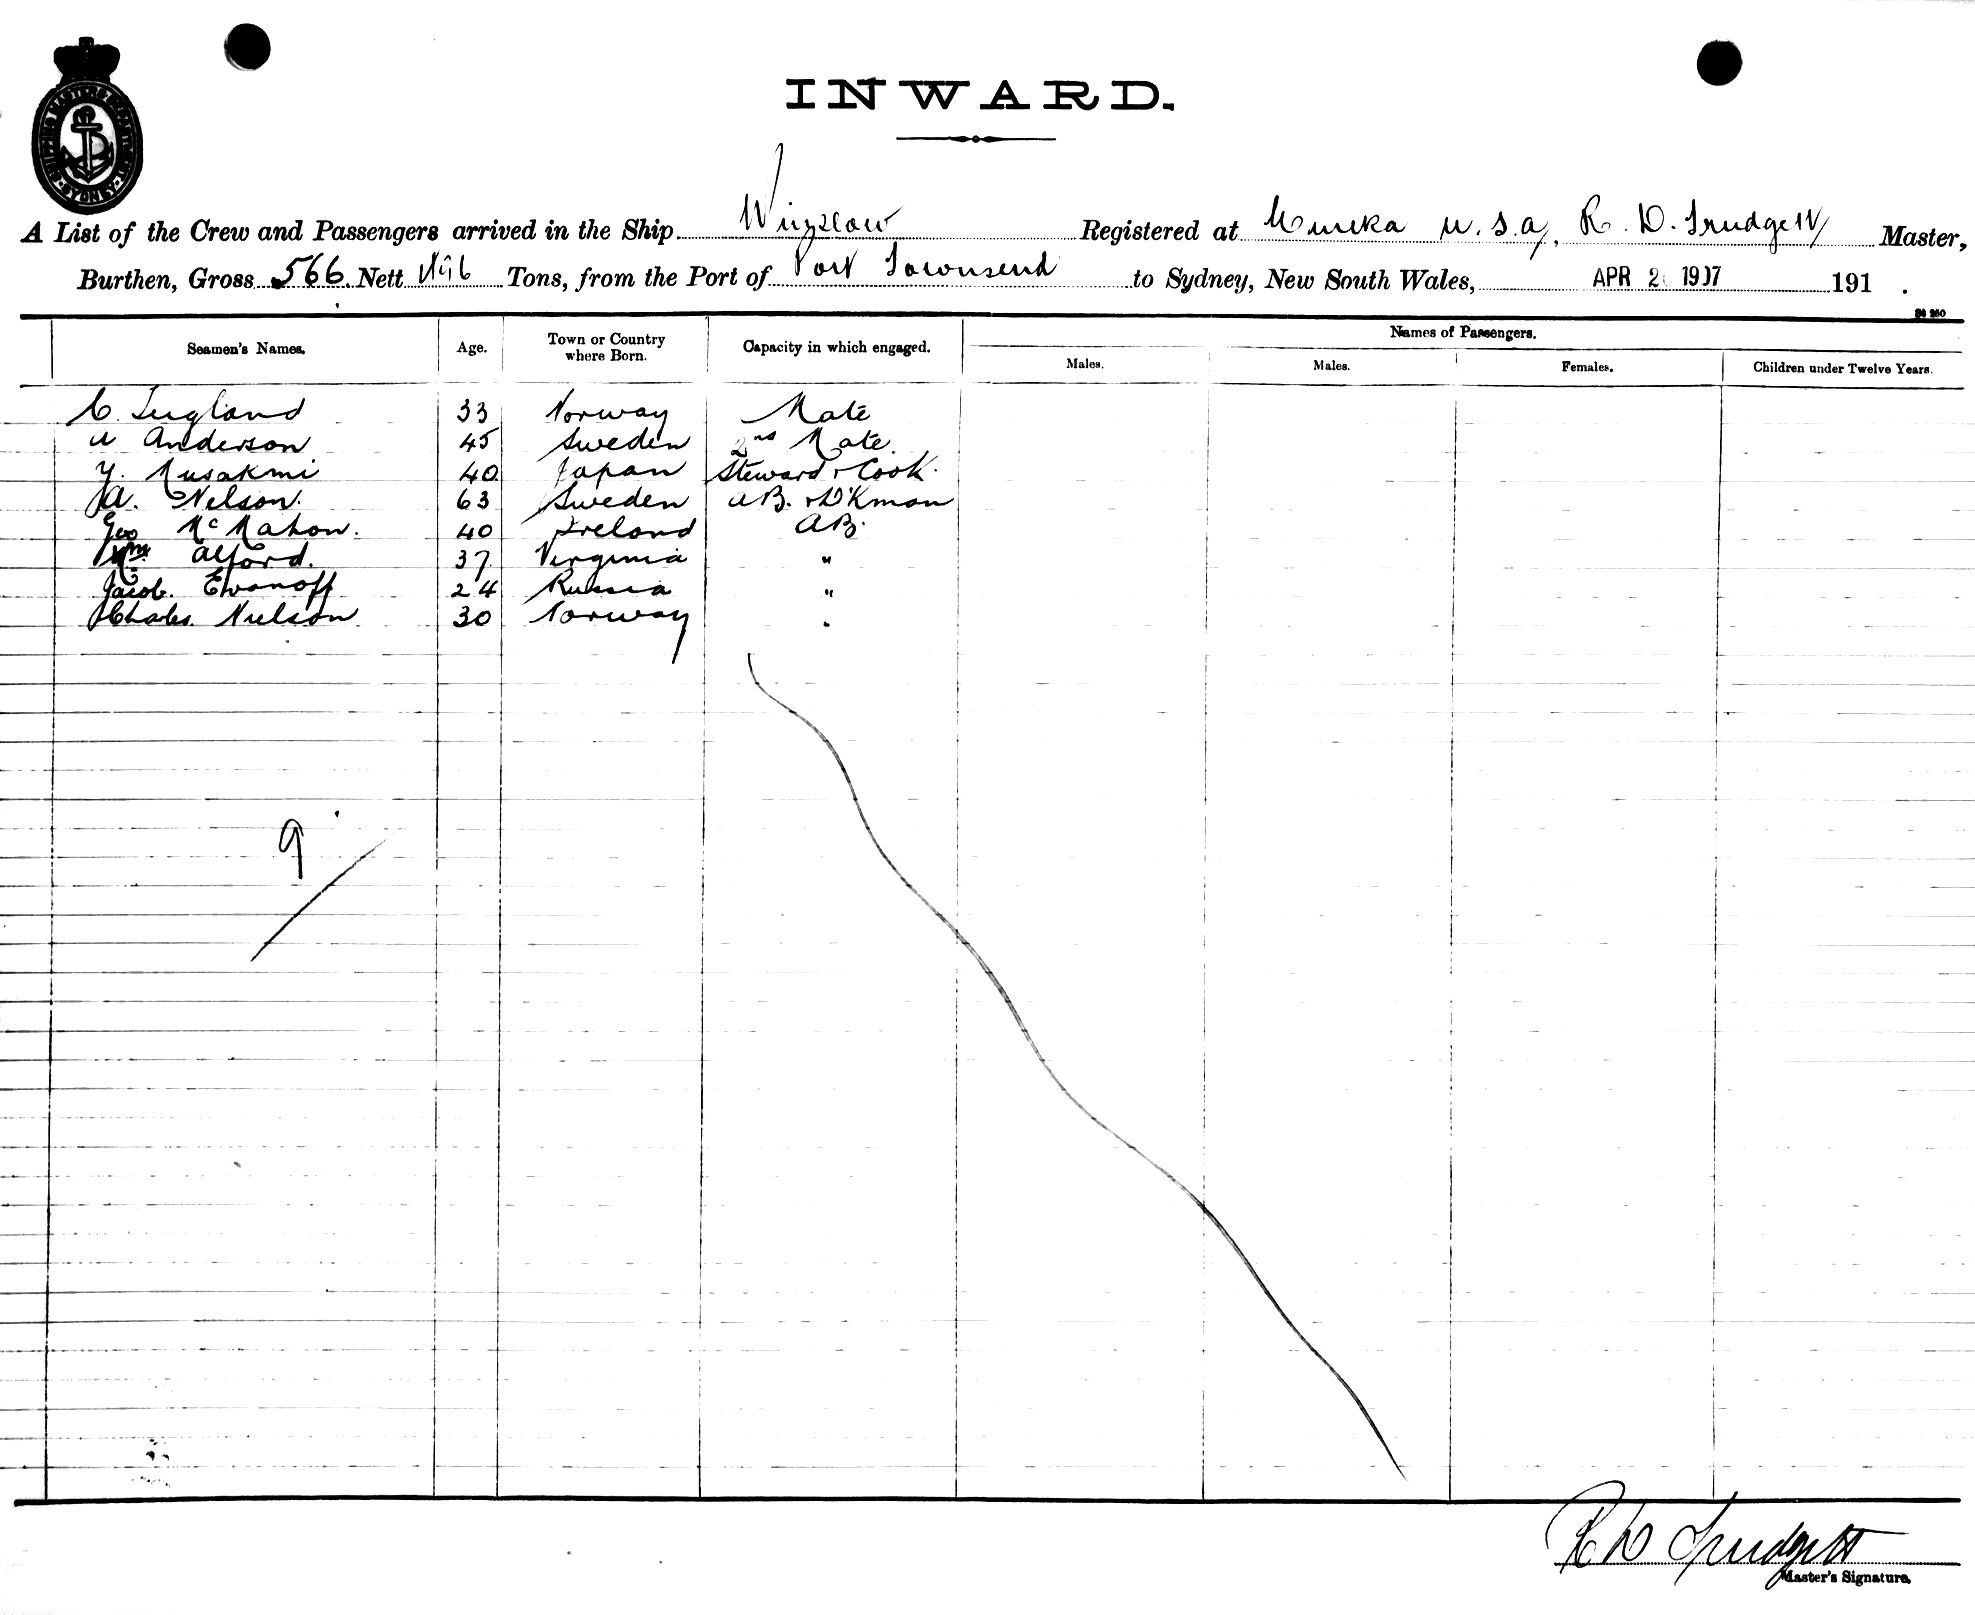 SHIPPING MASTERS DEPARTMENT
SYDNEY
INWARD.
A List of the Crew and Passengers arrived in the Ship Winslow Registered at Eureka U.S.A, R. D. Trudgett Master,
Burthen, Gross 566 Nett Tons, from the Port of Port Townsend to Sydney, New South Wales, APR 2 1907 191 .
Names of Passengers.
Seamen's Names. Age. Town or Country where Born. Capacity in which engaged. Males. Males. Females. Children under Twelve Years.
C. 33 Norway Mate
A Anderson 45 Sweden 2nd Mate.
Y. Musakmi 40 Japan Steward & Cook.
A. Nelson. 63 Sweden AB. & D'Kman
Geo McMahon. 40 Ireland AB.
Wm Alford. 37 Virginia "
Jacob. Ewanoff 24 Russia "
Charles Nielson 30 Norway "
9
R D Trudgett
Master's Signature.